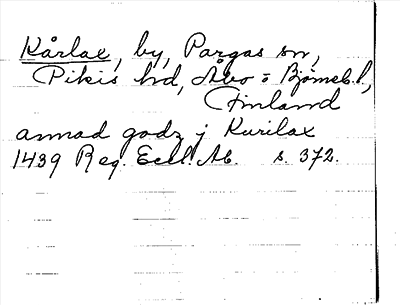 Kårlax, by, Pargas sn,
Pikis hd, Åbo = Björneb. l,
Finland
annad godz j Kurilax
1439 Reg. Eccl. Ab. s. 372.